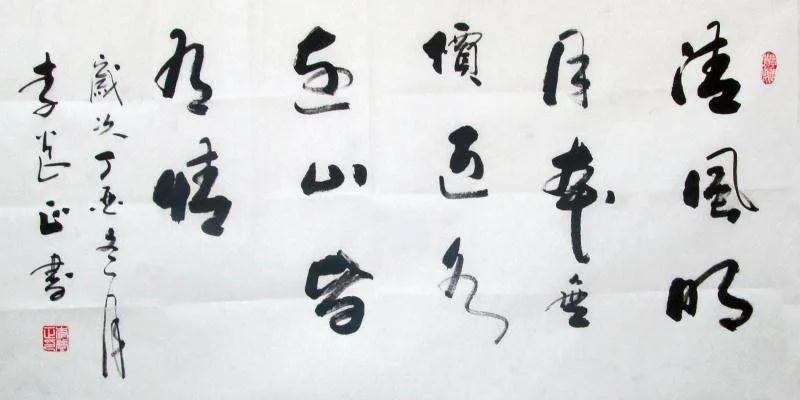 清風明
月本無
價近水
遠山皆
有情
歲次丁亥冬月
李正書